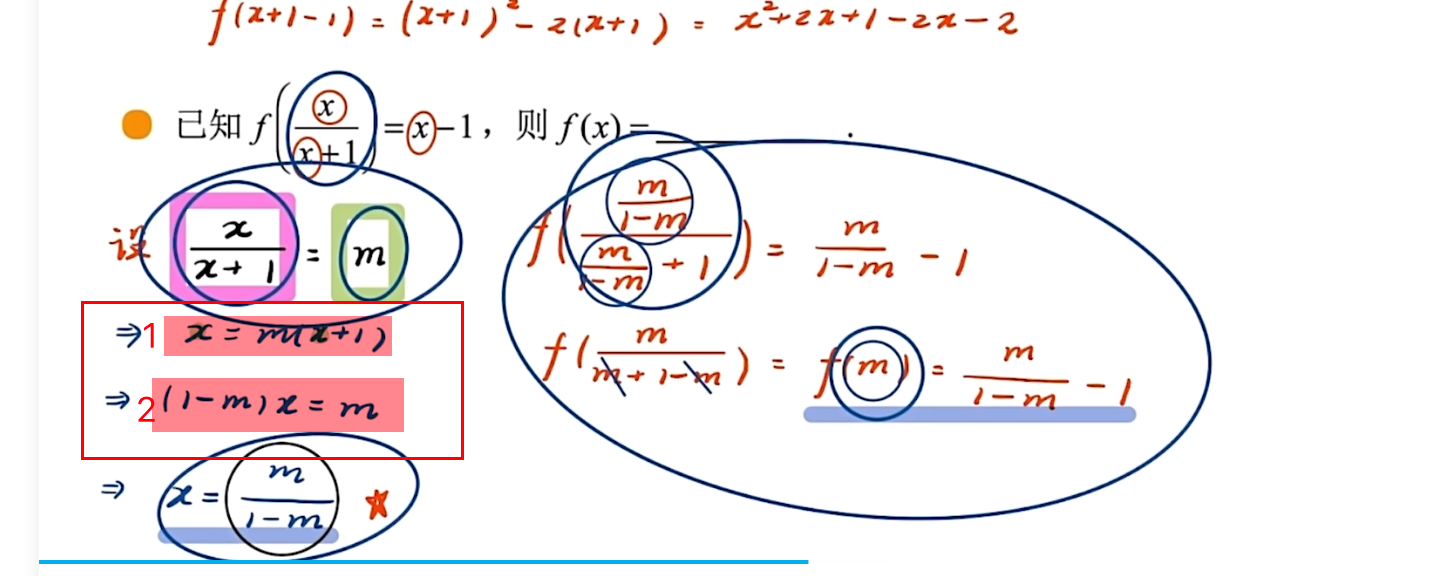 f(x+1-1) = (x+1)² - 2(x+1) = x²+2x+1-2x-2
已知 f(x/(x+1)) = x-1，则 f(x)=________.
设 x/(x+1) = m
⇒1 x = m(x+1)
⇒2 (1-m)x = m
⇒ x = m/(1-m) ★
f((m/(1-m))/(m/(1-m) + 1)) = m/(1-m) - 1
f(m/(m+1-m)) = f(m) = m/(1-m) - 1